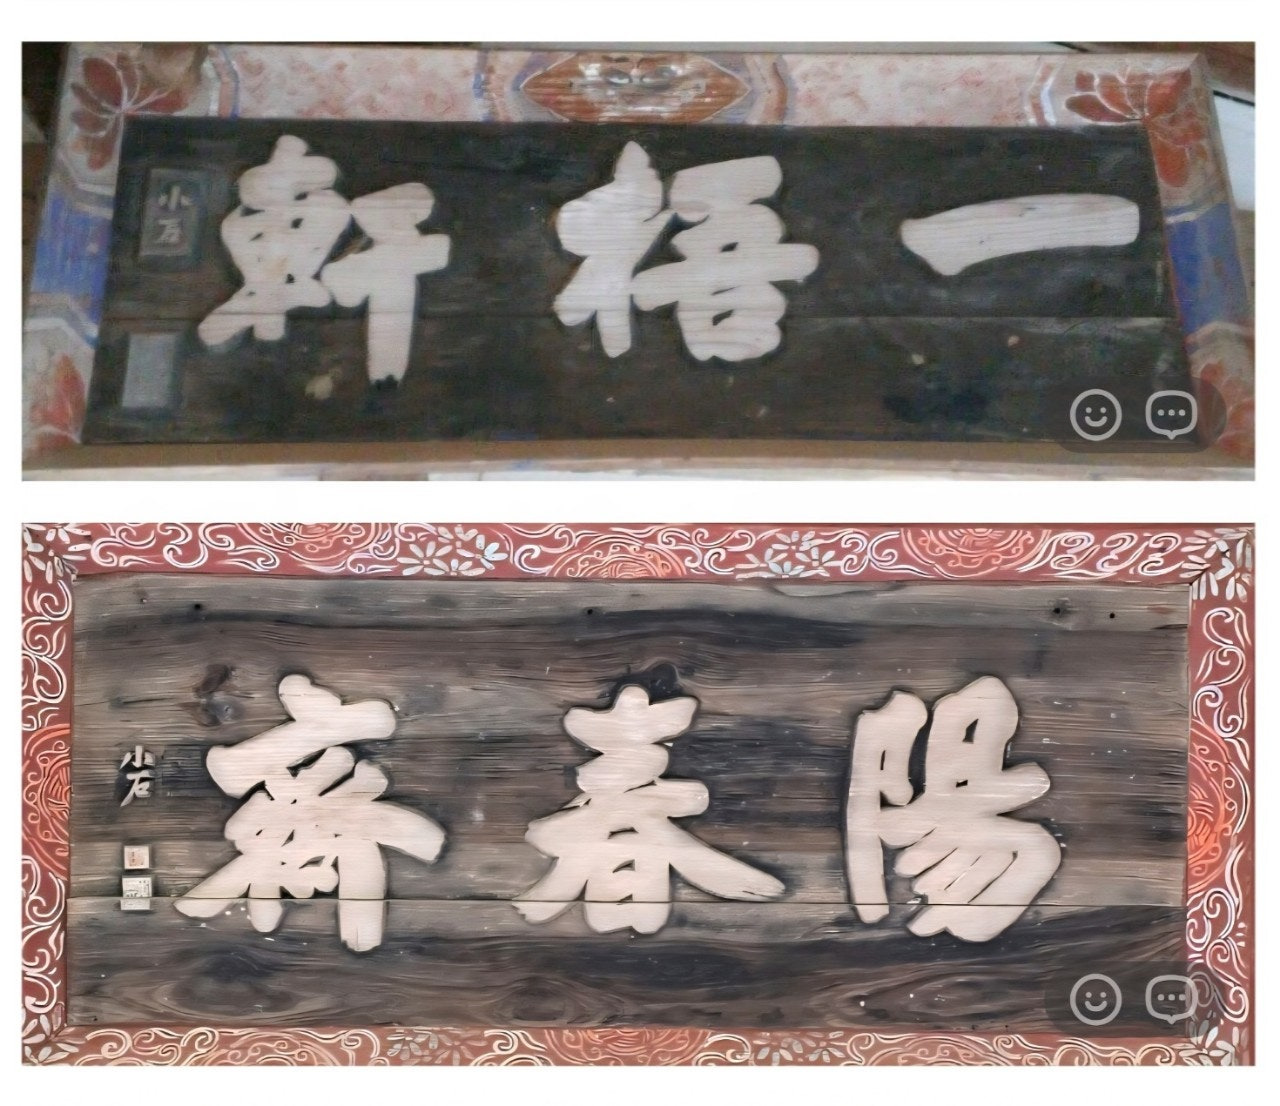 一梧軒
小石
陽春齋
小石